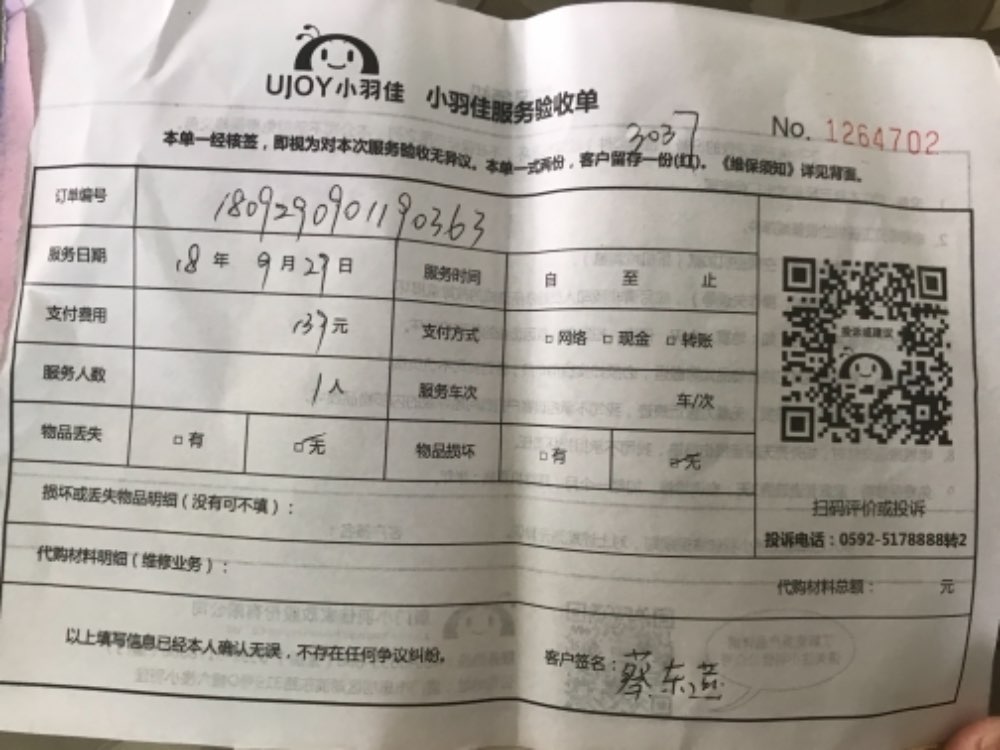 UJOY小羽佳 小羽佳服务验收单
3037
No. 1264702
本单一经核签，即视为对本次服务验收无异议。本单一式两份，客户留存一份(红)。《维保须知》详见背面。
订单编号 1809290901190363
服务日期 18 年 9 月 29 日 服务时间 自 至 止
支付费用 137元 支付方式 □网络 □现金 □转账
服务人数 1人 服务车次 车/次
物品丢失 □有 ☑无 物品损坏 □有 ☑无
投诉或建议
扫码评价或投诉
投诉电话：0592-5178888转2
损坏或丢失物品明细（没有可不填）：
代购材料明细（维修业务）： 代购材料总额： 元
以上填写信息已经本人确认无误，不存在任何争议纠纷。 客户签名：蔡东燕